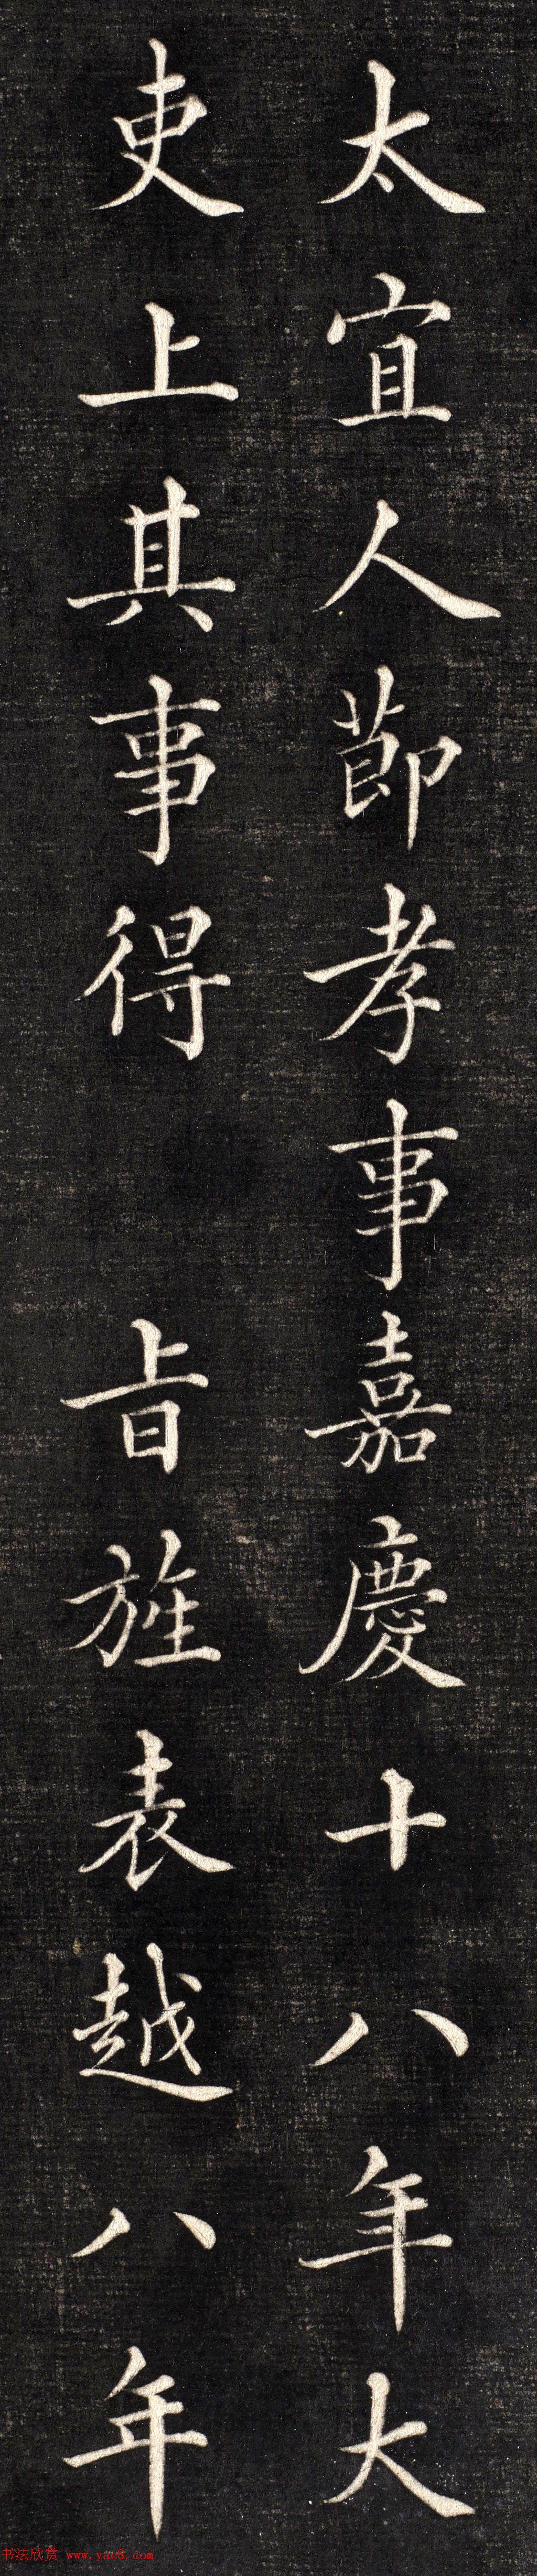 太宜人莭孝事嘉慶十八年大
吏上其事得 旨旌表越八年
书法欣赏 www.yac8.com